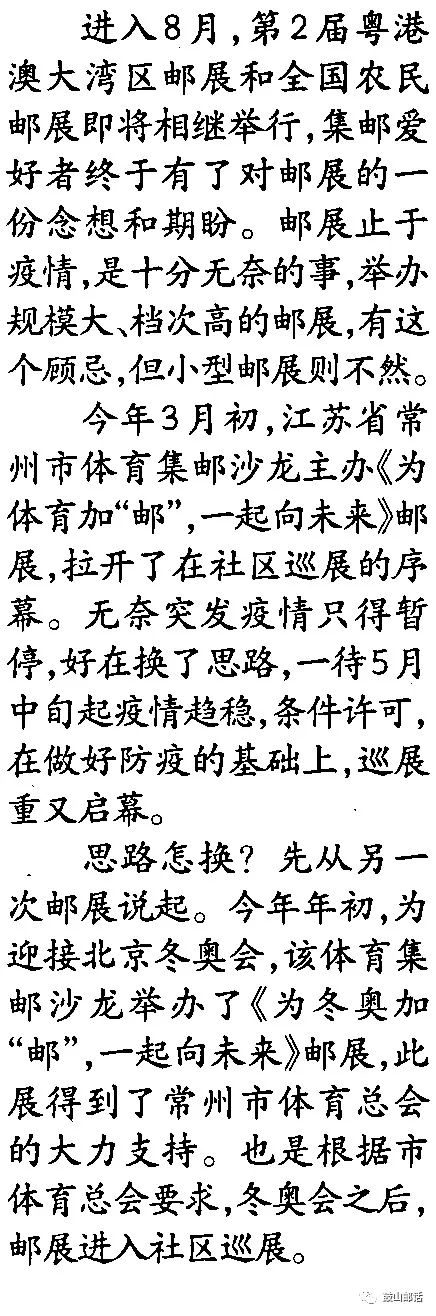 进入8月，第2届粤港
澳大湾区邮展和全国农民
邮展即将相继举行，集邮爱
好者终于有了对邮展的一
份念想和期盼。邮展止于
疫情，是十分无奈的事，举办
规模大、档次高的邮展，有这
个顾忌，但小型邮展则不然。
今年3月初，江苏省常
州市体育集邮沙龙主办《为
体育加“邮”，一起向未来》邮
展，拉开了在社区巡展的序
幕。无奈突发疫情只得暂
停，好在换了思路，一待5月
中旬起疫情趋稳，条件许可，
在做好防疫的基础上，巡展
重又启幕。
思路怎换？先从另一
次邮展说起。今年年初，为
迎接北京冬奥会，该体育集
邮沙龙举办了《为冬奥加
“邮”，一起向未来》邮展，此
展得到了常州市体育总会
的大力支持。也是根据市
体育总会要求，冬奥会之后，
邮展进入社区巡展。
鼓山邮话